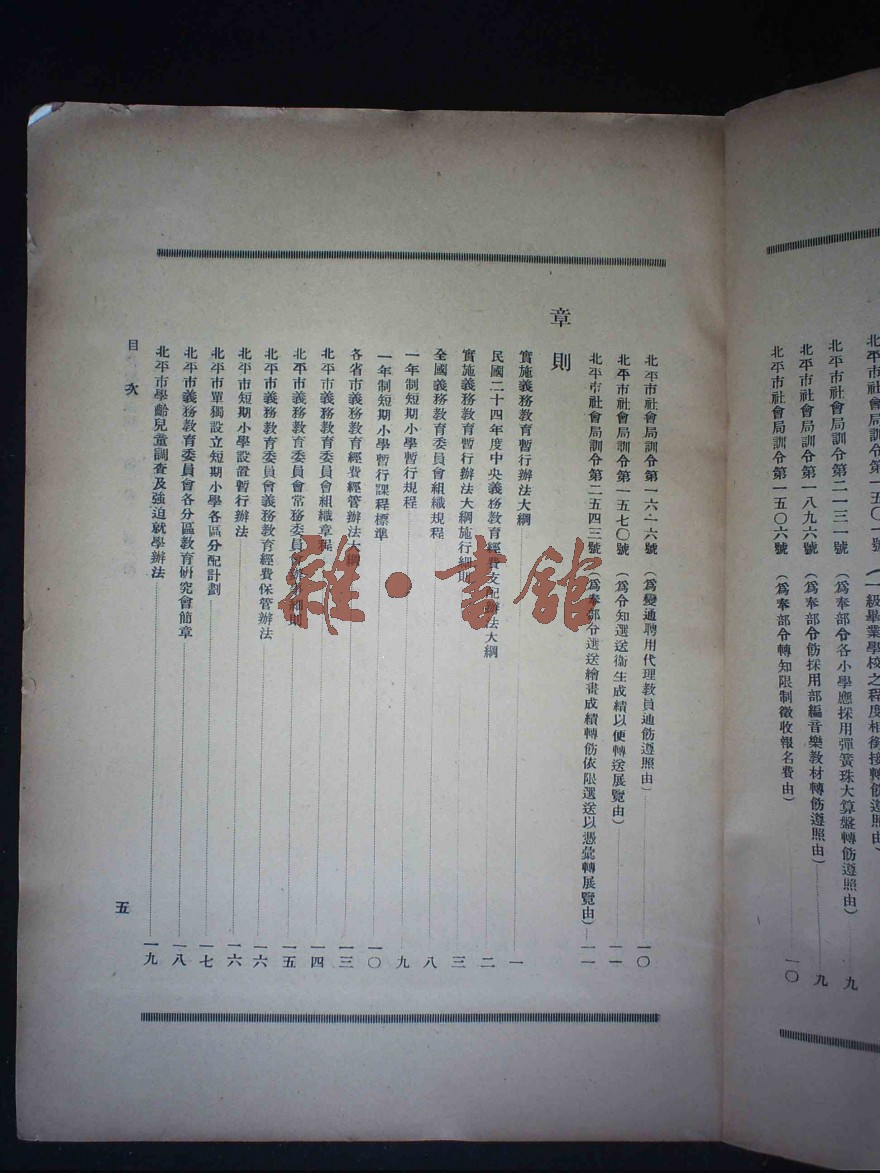 北平市社會局訓令第一五〇一號(一級畢業學校之程度相銜接轉飭遵照由)
北平市社會局訓令第二一三一號(爲奉部令各小學應採用彈簧珠大算盤轉飭遵照由)九
北平市社會局訓令第一八九六號(爲奉部令飭採用部編音樂教材轉飭遵照由)九
北平市社會局訓令第一五〇六號(爲奉部令轉知限制徵收報名費由)一〇
北平市社會局訓令第一六一六號(爲變通聘用代理教員通飭遵照由)一〇
北平市社會局訓令第一五七〇號(爲令知選送衞生成績以便轉送展覽由)一一
北平市社會局訓令第二五四三號(爲奉部令選送繪畫成績轉飭依限選送以憑彙轉展覽由)一一
章則
實施義務教育暫行辦法大綱一
民國二十四年度中央義務教育經費支配辦法大綱二
實施義務教育暫行辦法大綱施行細則三
全國義務教育委員會組織規程八
一年制短期小學暫行規程九
一年制短期小學暫行課程標準一〇
各省市義務教育經費經管辦法大綱一三
北平市義務教育委員會組織章程一四
北平市義務教育委員會常務委員會辦事細則一五
北平市義務教育委員會義務教育經費保管辦法一六
北平市短期小學設置暫行辦法一六
北平市單獨設立短期小學各區分配計劃一七
北平市義務教育委員會各分區教育研究會簡章一八
北平市學齡兒童調查及強迫就學辦法一九
目次
五
雜·書館